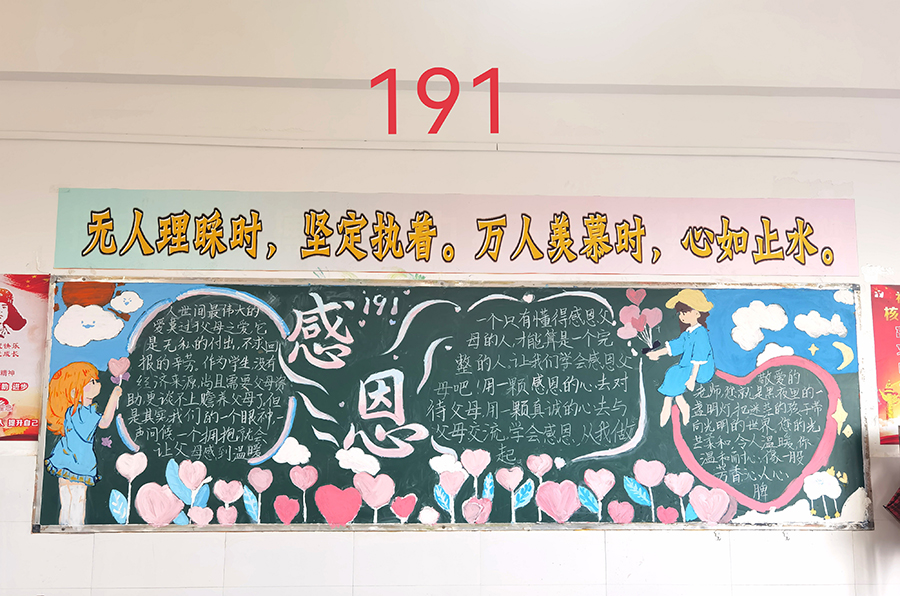 191
无人理睬时，坚定执着。万人羡慕时，心如止水。
感恩
191
人世间最伟大的
爱莫过于父母之爱,它
是无私的付出,不求回
报的辛劳,作为学生没有
经济来源,尚且需要父母
助,更谈不上赡养父母了,但
是其实我们的一个眼神一
句问候一个拥抱就会
让父母感到温暖
一个只有懂得感恩父
母的人,才能算是一个完
整的人,让我们学会感恩父
母吧!用一颗感恩的心去对
待父母,用一颗真诚的心去与
父母交流,学会感恩,从我做
起
敬爱的
老师,您就是黑夜里的一
盏明灯,把迷茫的孩子带
向光明的世界,您的光
柔和令人温暖,你
温和的心,像一股
芳香沁人心
脾
成长
精神
进步
提升自己
核